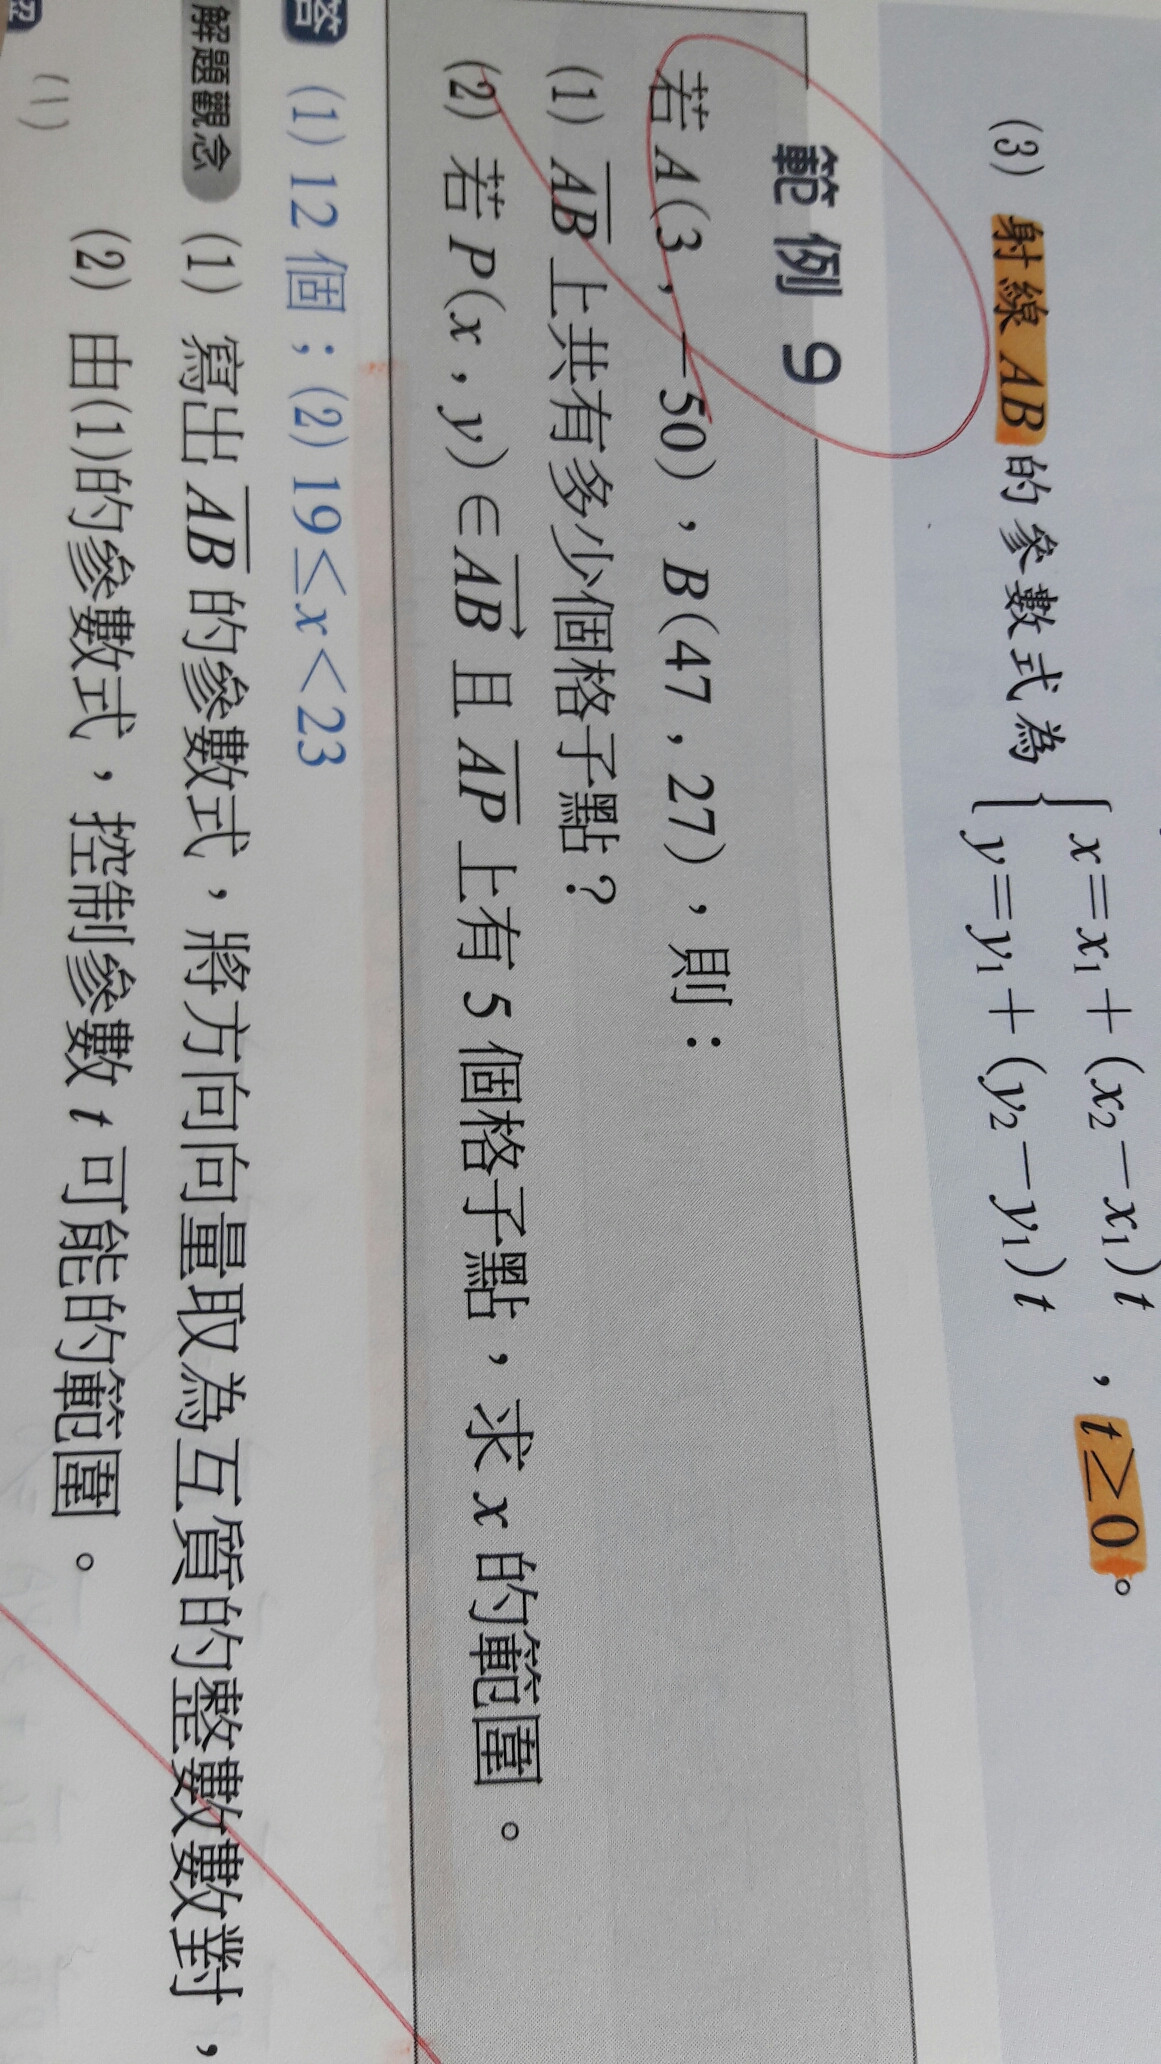 (3) 射線 AB 的參數式為 { x=x₁+(x₂−x₁)t
y=y₁+(y₂−y₁)t , t≥0。
範例 9
若 A(3,−50),B(47,27),則:
(1) \overline{AB} 上共有多少個格子點?
(2) 若 P(x,y)∈\overrightarrow{AB} 且 \overline{AP} 上有 5 個格子點,求 x 的範圍。
答 (1) 12 個;(2) 19≤x<23
解題觀念 (1) 寫出 \overline{AB} 的參數式,將方向向量取為互質的整數數對,
(2) 由(1)的參數式,控制參數 t 可能的範圍。
(1)